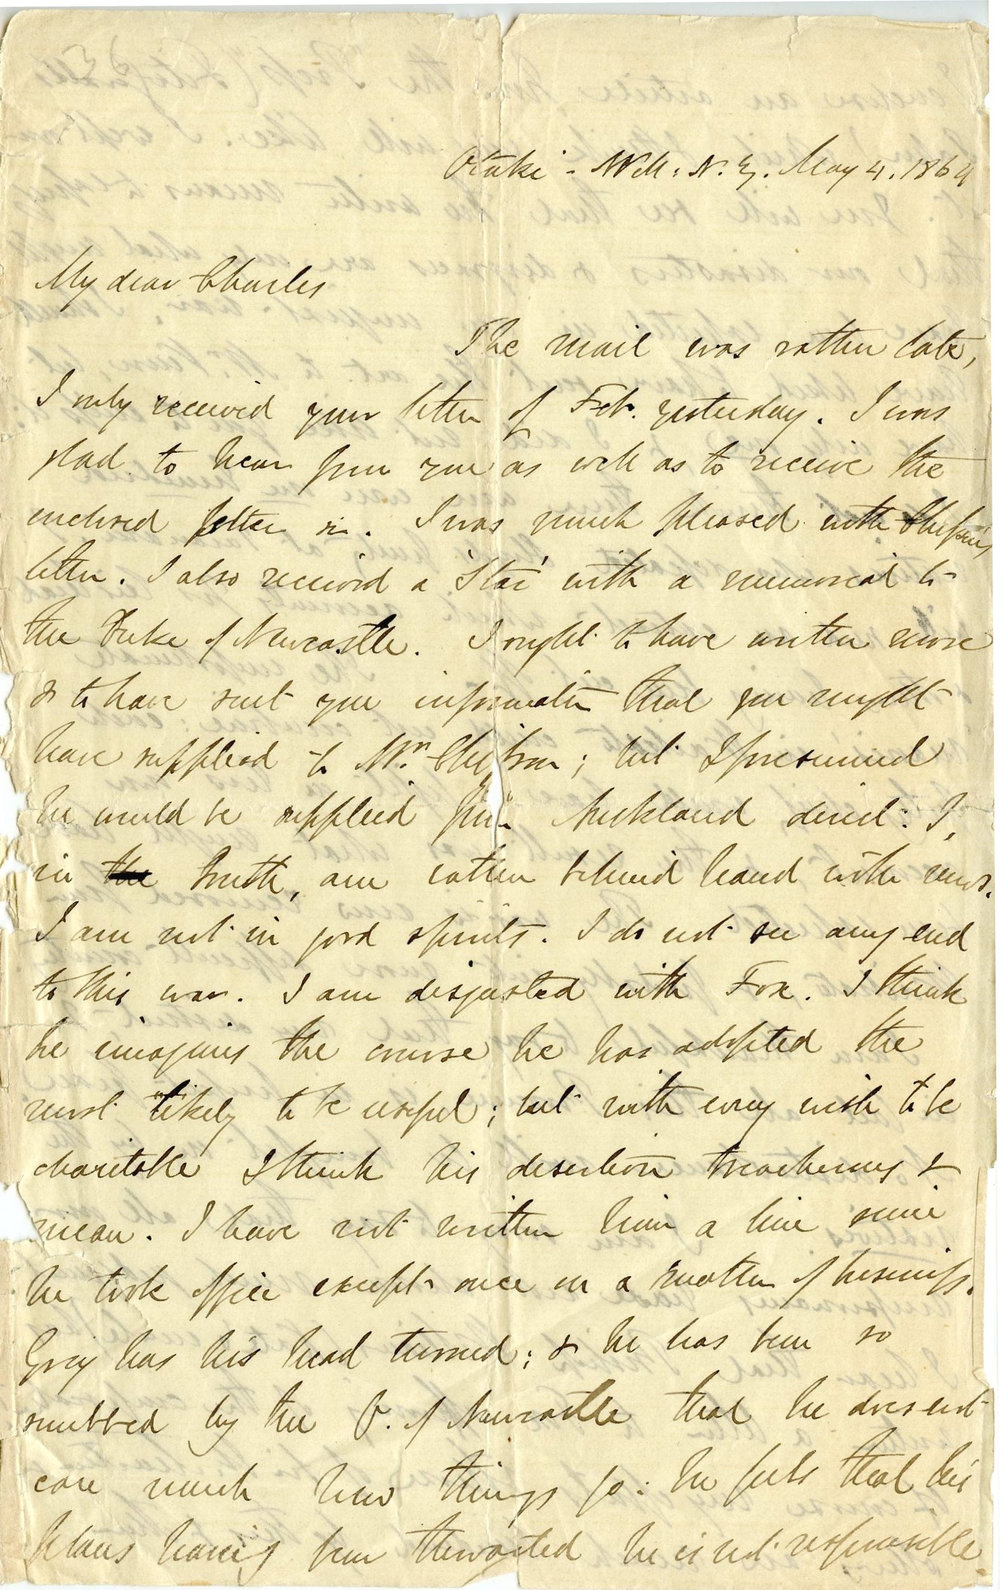 Otaki - Well: N. Z. May 4. 1864
My dear Charles
The mail was rather late,
I only received your letter of Feb. yesterday. I was
glad to hear from you as well as to receive the
enclosed letter in. I was much pleased with Chesson's
letter. I also received a 'Star' with a memorial to
the Duke of Newcastle. I ought to have written more
& to have sent you information that you might
have supplied to Mr. Chesson; but I presumed
he would be supplied from Auckland direct. I,
in the truth, am rather behind hand with news.
I am not in good spirits. I do not see any end
to this war. I am disgusted with Fox. I think
he imagines the course he has adopted the
most likely to be useful; but with every wish to be
charitable I think his desertion treacherous &
mean. I have not written him a line since
he took office except once on a matter of business.
Grey has his head turned; & he has been so
snubbed by the D. of Newcastle that he does not
care much how things go: he feels that his
plans having been thwarted he is not responsible